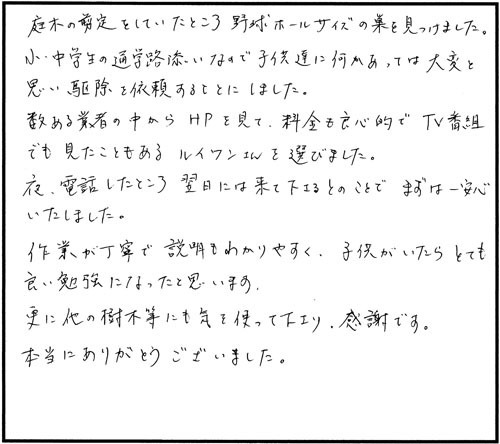 庭木の剪定をしていたところ野球ボールサイズの巣を見つけました。
小・中学生の通学路添いなので子供達に何かあっては大変と
思い駆除を依頼することにしました。
数ある業者の中からHPを見て、料金も良心的でTV番組
でも見たこともあるルイワンさんを選びました。
夜、電話したところ翌日には来て下さるとのことでまずは一安心
いたしました。
作業が丁寧で説明もわかりやすく、子供がいたらとても
良い勉強になったと思います。
更に他の樹木等にも気を使って下さり、感謝です。
本当にありがとうございました。